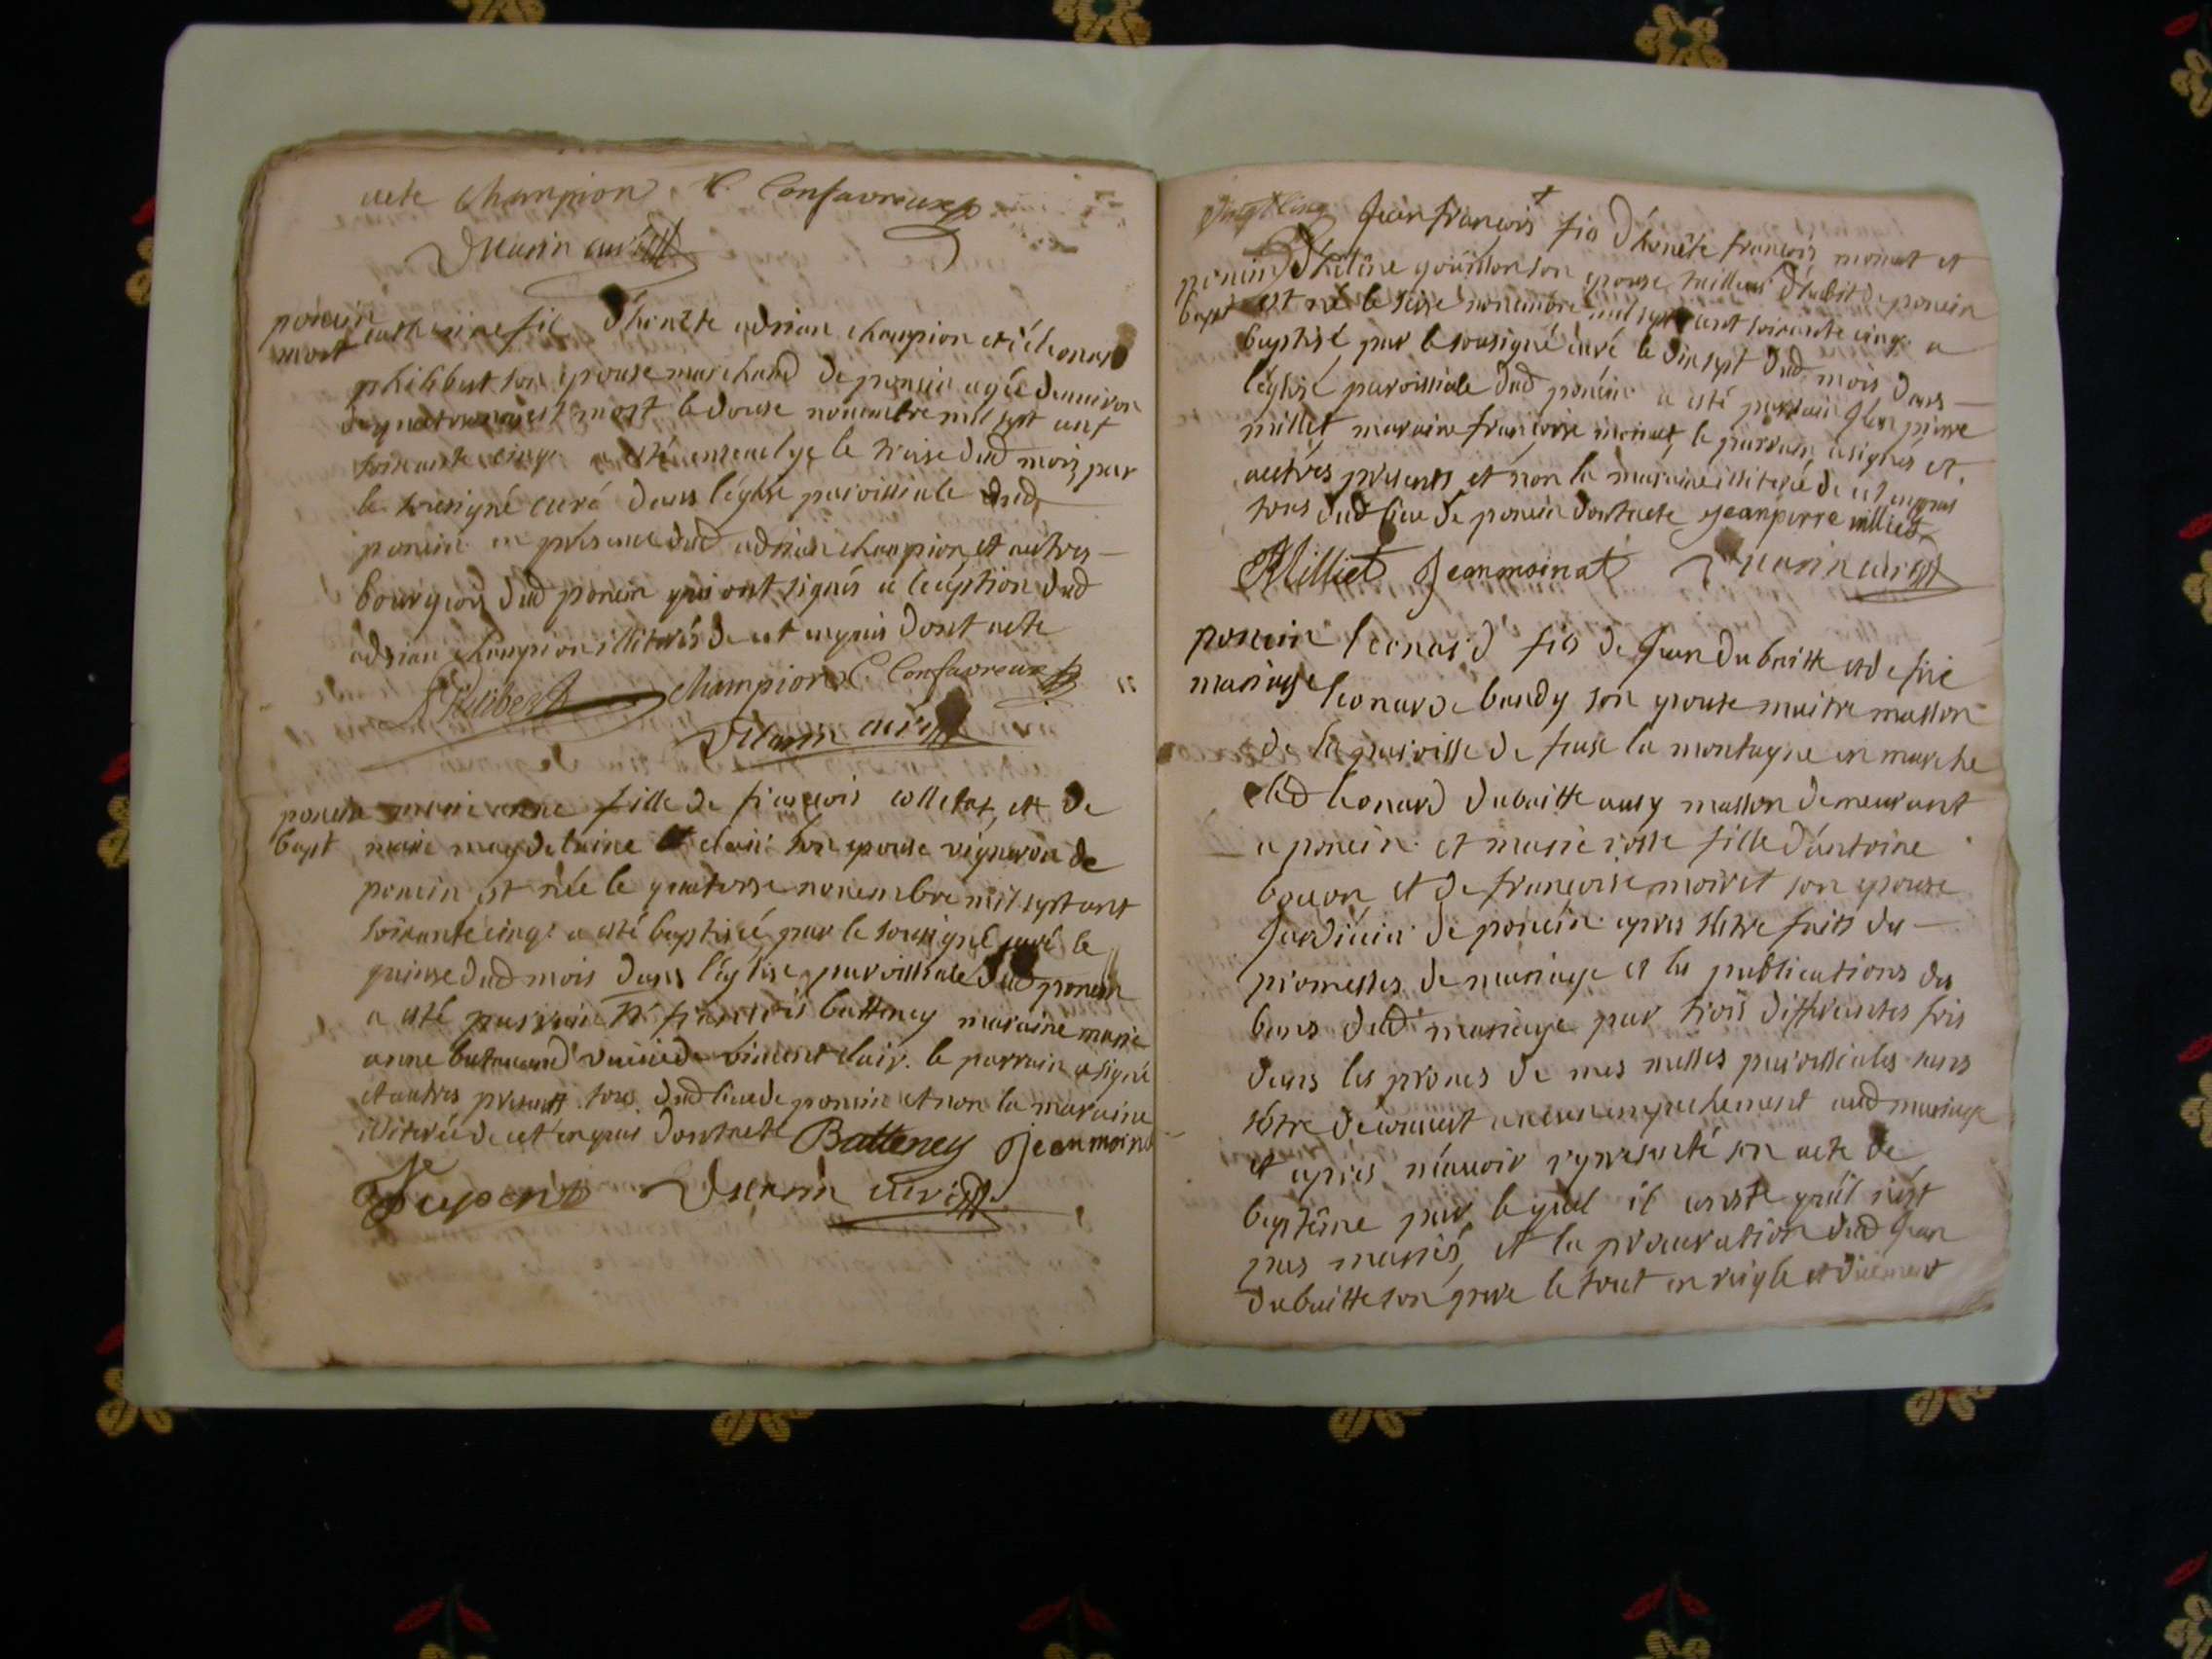 acte Champion C. Confavreux
curé
poncin
mort
catherine fil d'honete adrian champion et de leonard
philibert son epouse marchand de poncin agée d'environ
est mort le douse novembre mil sept cent
soixante cinq. a esté ensevelye le treise dud mois par
le sousigné curé dans l'eglise paroissiale dud
poncin en presence dud adrian champion et autres
bourgeois dud poncin qui ont signés a l'exeption dud
adrian champion illiterés de cet enquis dont acte
Philibert champion C Confavreux
curé
poncin
bapt
marie anne fille de francois colletat, et de
marie magdelaine clair son epouse vigneron de
poncin est née le quatorse novembre mil sept cent
soixante cinq. a esté baptisée par le sousigné curé le
quinse dud mois dans l'eglise paroissiale dud poncin
a esté parrain Sr. francois batteney maraine marie
anne vincent clair. le parrain a signé
et autres presents tous dud lieu de poncin et non la maraine
illiterée de cet enquis dont acte Batteney Jean moinat
Dupont curé
vingt cinq
poncin
bapt
Jean francois fis d'honête francois moinat et
d'heleine gourdon son epouse tailleur d'habit de poncin
est né le seise novembre mil sept cent soixante cinq. a
baptisé par le sousigné curé le dix sept dud mois dans
l'eglise paroissiale dud poncin a esté parrain Jean pierre
milliet maraine francoise moinat, le parrain a signés et
autres presents et non la maraine illiterée de cet enquis
tous dud lieu de poncin dont acte Jeanpierre milliet
Milliet Jeanmoinat curé
poncin
mariage
leonard fis de Jean dubaitte et de fue
leonarde baudy son epouse maitre masson
de la paroisse de la montagne en marche
led leonard dubaitte ausy masson demeurant
a poncin et marie rosse fille d'antoine
bouon et de francoise moiret son epouse
Jardinier de poncin apres s'etre faits des
promesses de mariage et les publications des
bans dud mariage par trois differantes fois
dans les prones de mes messes paroissiales sans
s'être decouvert aucun empechement aud mariage
et apres m'avoir representé son acte de
baptême par lequel il conste qu'il n'est
pas mariés, et la procuration dud Jean
dubaitte son pere le tout en reigle et duement